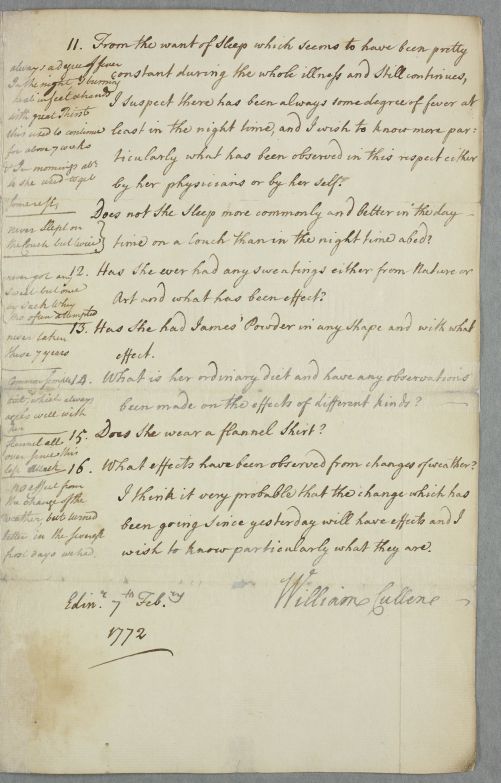 11. From the want of Sleep which seems to have been pretty
constant during the whole illness and Still continues,
I suspect there has been always some degree of fever at
least in the night time, and I wish to know more par:
ticularly what has been observed in this respect either
by her physicians or by her self.
Does not she Sleep more commonly and better in the day
time on a Couch than in the night time abed?
12. Has She ever had any sweatings either from Nature or
Art and what has been effect?
13. Has She had James' Powder in any Shape and with what
effect.
14. What is her ordinary diet and have any observations
been made on the effects of different kinds?
15. Does She wear a flannel Shirt?
16. What effects have been observed from changes of weather?
I think it very probable that the change which has
been going since yesterday will have effects and I
wish to know particularly what they are.
William Cullen
Edinr. 7th Febry
1772
always a degree of fever
In the night, a burning
heat in feet & hands
with great Thirst
this used to continue
for above 7 weeks
& In mornings abt.
she used to get
some rest
never Slept on
the Couch but twice
never got any
Sweat but one
Sack Whey
often attempted
never taken
these 7 years
which always
agrees well with
her
flannel all
over since this
last Attack
No effect from
the change of the
weather, but turned
better in the
frost days we had.